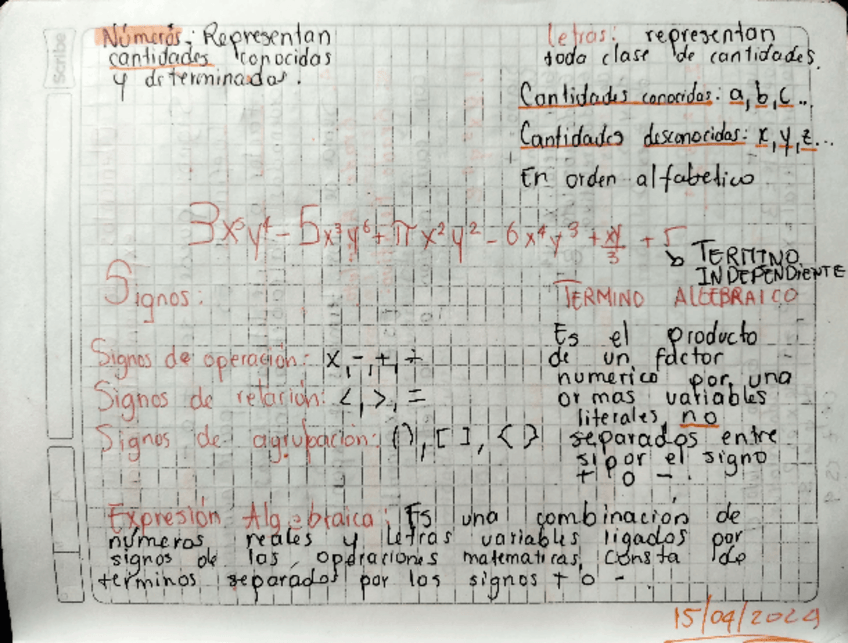 Scribe
Números: Representan
cantidades conocidas
y determinadas.
Letras: representan
toda clase de cantidades.
Cantidades conocidas: a, b, c...
Cantidades desconocidas: x, y, z...
En orden alfabetico
3x⁵y⁴ - 5x³y⁶ + πx²y² - 6x⁴y³ + xy/3 + 5
TERMINO
INDEPENDIENTE
Signos:
Signos de operación: x, -, +, ÷
Signos de relación: <, >, =
Signos de agrupación: (), [ ], { }
TERMINO ALGEBRAICO
Es el producto
de un factor
numerico por una
or mas variables
literales, no
separados entre
si por el signo
+ o -.
Expresión Algebraica: Es una combinación de
números reales y letras variables ligados por
signos de las operaciones matematicas, consta de
terminos separados por los signos + o -
15/04/2024